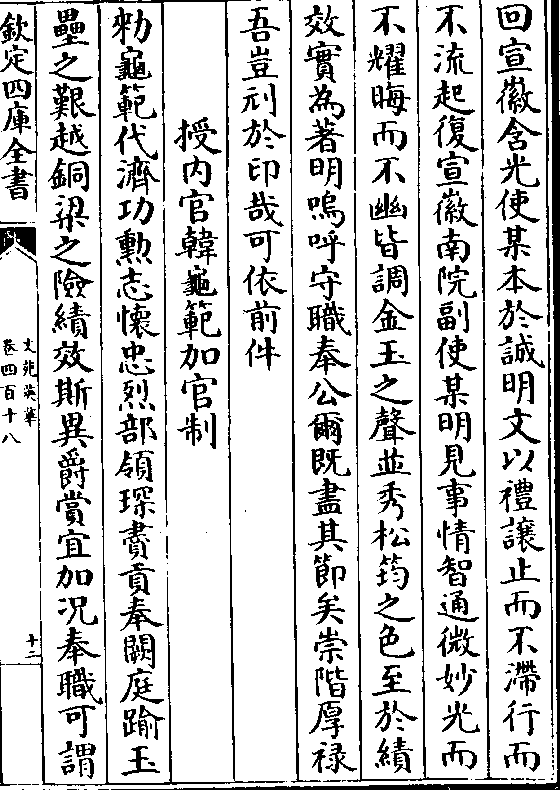 回宣徽含光使某本於誠明文以禮讓止而不滯行而
不流起復宣徽南院副使某明見事情智通微妙光而
不耀晦而不幽皆調金玉之聲並秀松筠之色至於績
效實為著明嗚呼守職奉公爾既盡其節矣崇階厚禄
吾豈刓於印哉可依前件
授内官韓龜範加官制
勑龜範代濟功勲志懷忠烈部領琛賮貢奉闕庭踰玉
壘之艱越銅梁之險績效斯異爵賞宜加况奉職可謂
欽定四庫全書
文苑英華
卷四百十八
十二